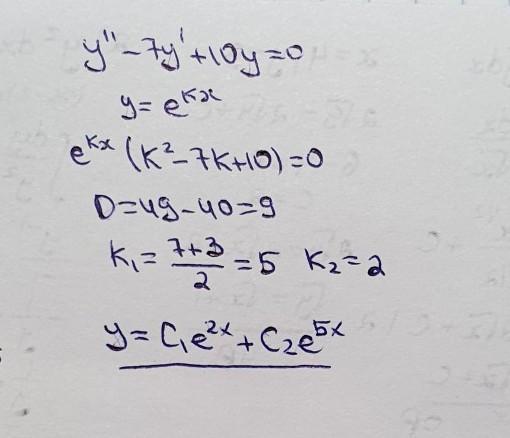 y'' - 7y' + 10y = 0
y = e^{kx}
e^{kx} (k² - 7k + 10) = 0
D = 49 - 40 = 9
k₁ = \frac{7+3}{2} = 5 k₂ = 2
y = C₁e^{2x} + C₂e^{5x}